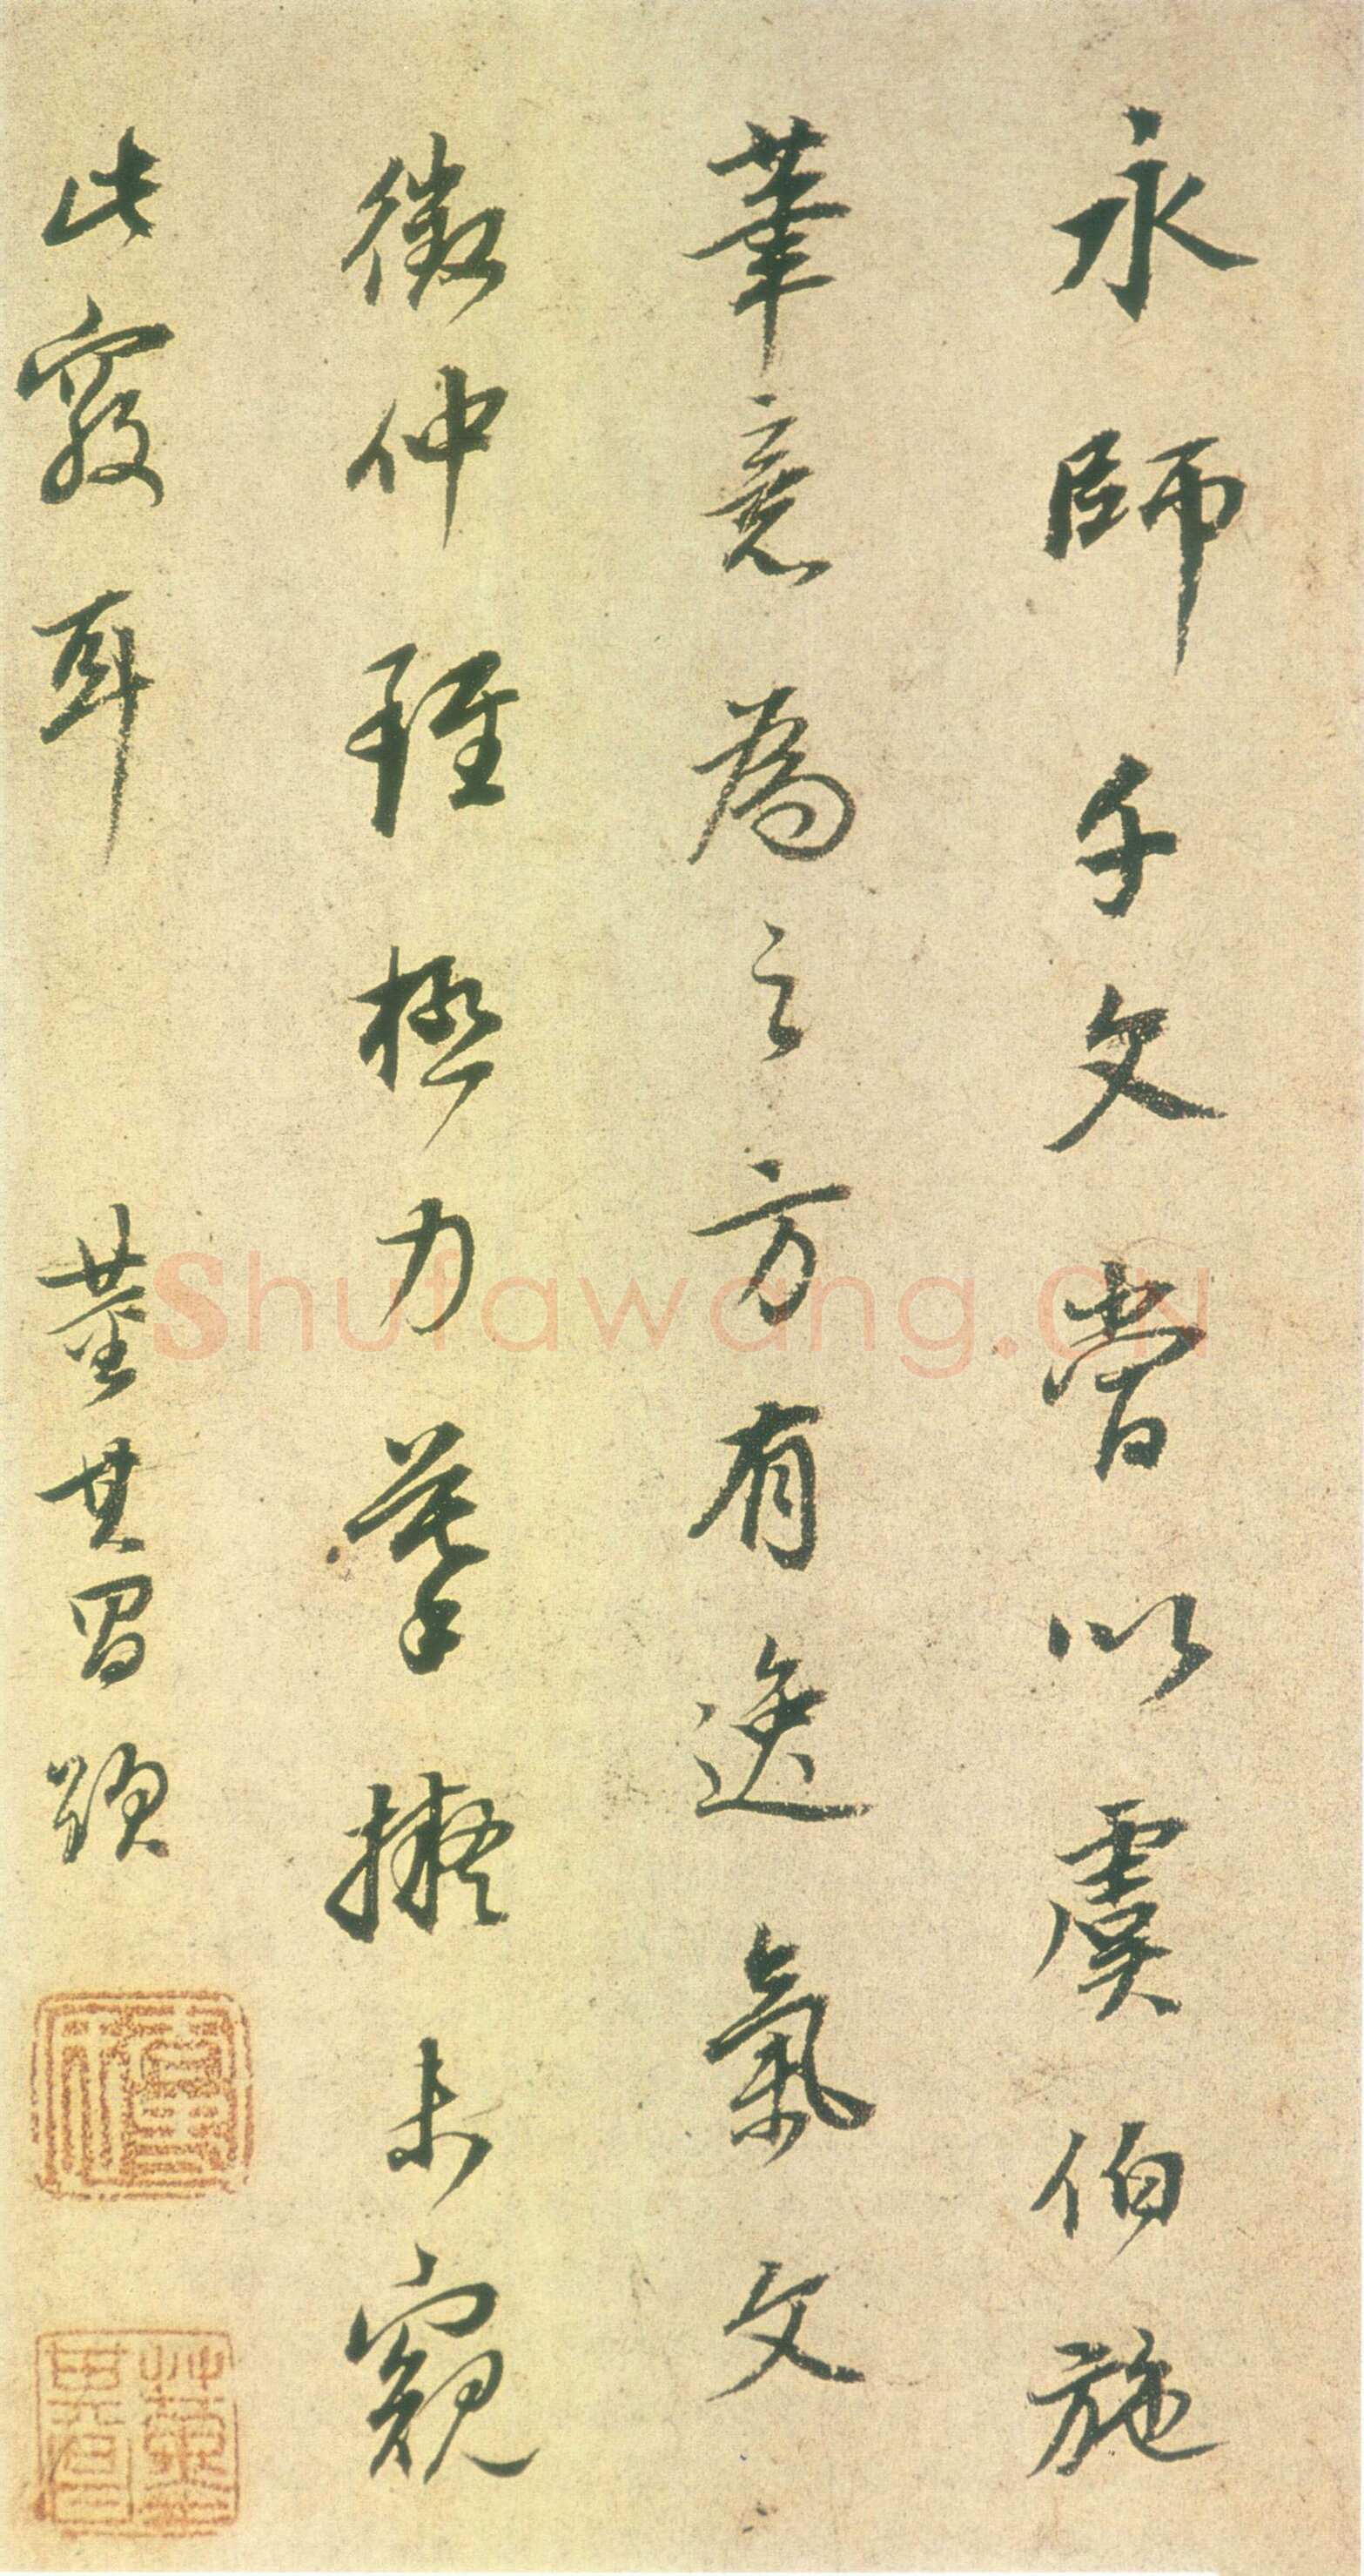 永師千文嘗以虞伯施
筆意為之方有逸氣文
徵仲雖極力摹擬未窺
此竅耳
董其昌題
Shufawang.CN